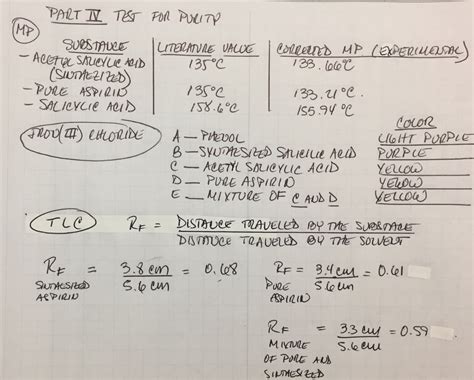 PART IV TEST FOR PURITY
MP
SUBSTANCE LITERATURE VALUE CORRECTED MP (EXPERIMENTAL)
- ACETYL SALICYLIC ACID 135°C 133.66°C
(SYNTHESIZED)
- PURE ASPIRIN 135°C 133.21°C
- SALICYLIC ACID 158.6°C 155.94°C
COLOR
IRON(III) CHLORIDE A - PHENOL LIGHT PURPLE
B - SYNTHESIZED SALICILIC ACID PURPLE
C - ACETYL SALICYLIC ACID YELLOW
D - PURE ASPIRIN YELLOW
E - MIXTURE OF C AND D YELLOW
TLC RF = DISTANCE TRAVELED BY THE SUBSTANCE
DISTANCE TRAVELED BY THE SOLVENT
RF = 3.8 cm = 0.68 RF = 3.4 cm = 0.61
SINTHESIZED 5.6 cm PURE 5.6 cm
ASPIRIN ASPIRIN
RF = 3.3 cm = 0.59
MIXTURE 5.6 cm
OF PURE AND
SINTHESIZED